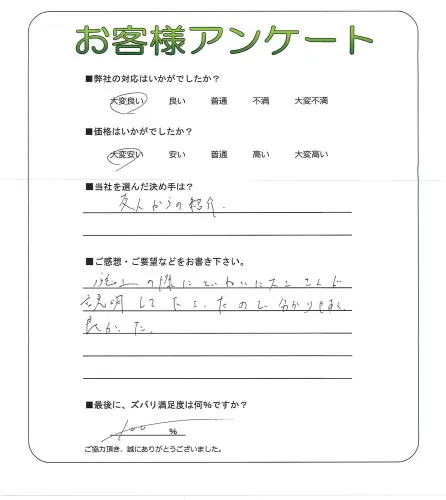 お客様アンケート
■弊社の対応はいかがでしたか？
大変良い 良い 普通 不満 大変不満
■価格はいかがでしたか？
大変安い 安い 普通 高い 大変高い
■当社を選んだ決め手は？
友人からの紹介.
■ご感想・ご要望などをお書き下さい。
施工の際にていねいに
説明して下さったので分かりやすく
良かった.
■最後に、ズバリ満足度は何%ですか？
100 %
ご協力頂き、誠にありがとうございました。